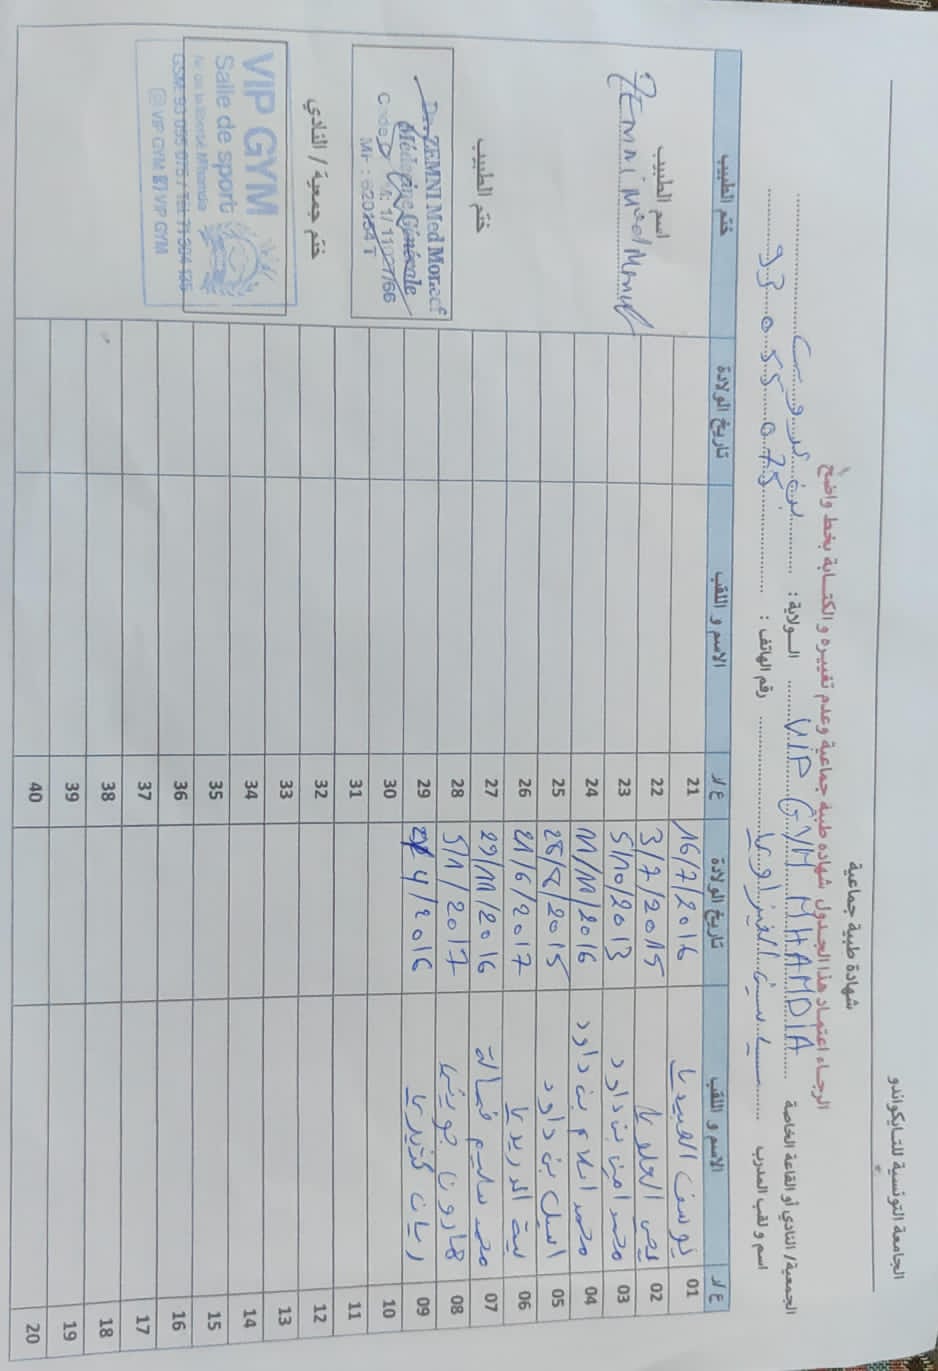 الجامعة التونسية للتايكواندو
شهادة طبية جماعية
الرجاء اعتماد هذا الجدول شهادة طبية جماعية وعدم تغييره و الكتابة بخط واضح
الجمعية/ النادي أو القاعة الخاصة VIP GYM MHAMDIA الولاية : بن عروس
اسم و لقب المدرب رقم الهاتف : 93 055 075
ع/ر الاسم و اللقب تاريخ الولادة ع/ر الاسم و اللقب تاريخ الولادة ختم الطبيب
01 يوسف العبيدي 16/7/2016 21
02 العلوي 3/7/2015 22
03 محمد امين بن داود 5/10/2013 23
04 محمد اسلام بن داود 11/11/2016 24
05 اسيل بن داود 28/8/2015 25
06 الدريدي 21/6/2017 26
07 محمد سليم 29/11/2016 27
08 هارون جويني 5/1/2017 28
09 ريان 4/2016 29
10 30
11 31
12 32
13 33
14 34
15 35
16 36
17 37
18 38
19 39
20 40
اسم الطبيب
ZEMNI Med Moncef
ختم الطبيب
Dr. ZEMNI Med Moncef
Médecine Générale
ختم جمعية / النادي
VIP GYM
Salle de sport
GSM: 93 055 075 / Tel: 71
VIP GYM VIP GYM